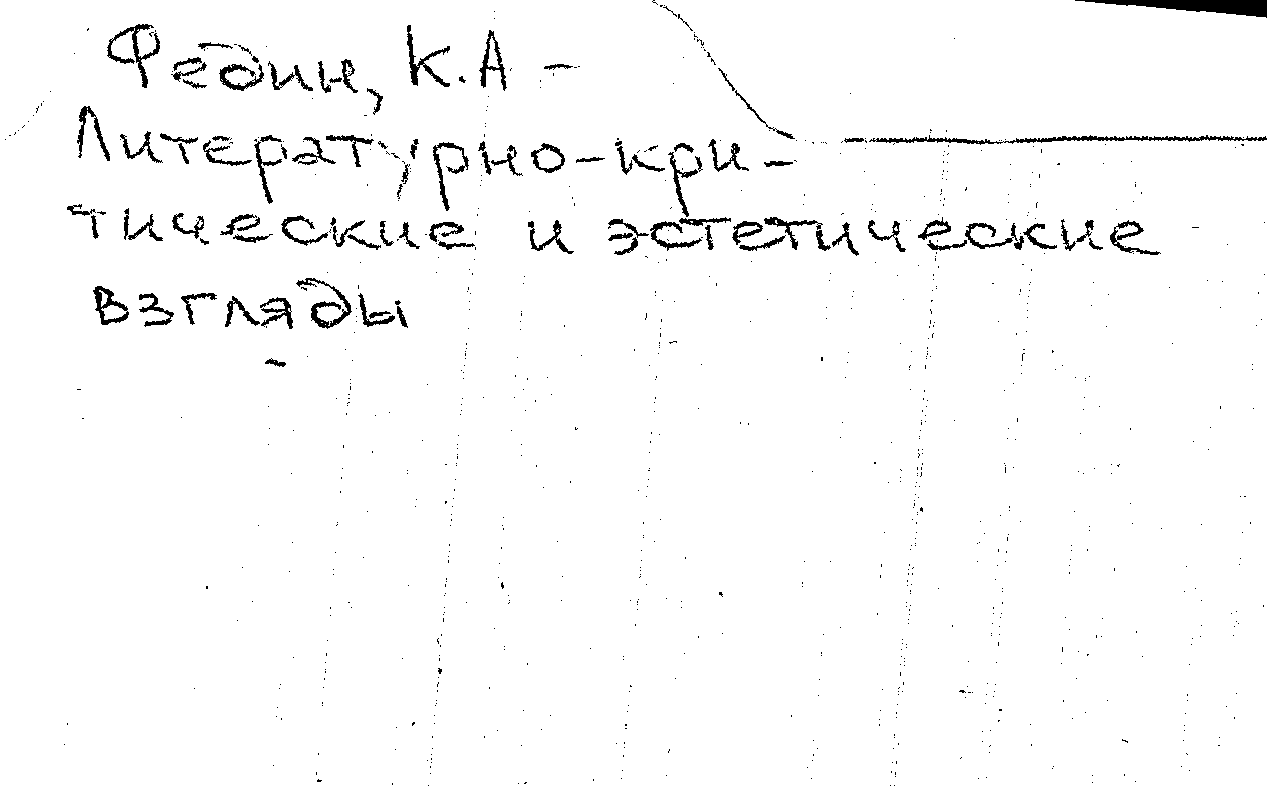 Федин, К.А –
Литературно-кри-
тические и эстетические
взгляды